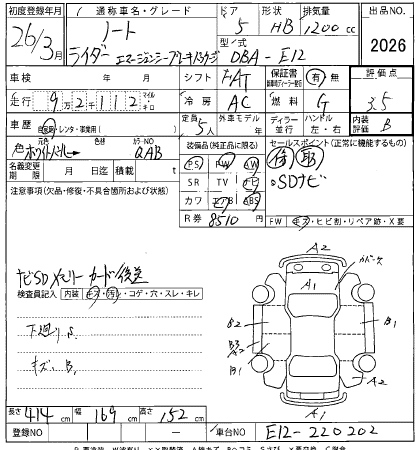 初度登録年月 通称車名・グレード ドア 形状 排気量 出品NO.
26/3月 ノート 5 HB 1200cc
ライダー エマージェンシーブレーキパッケージ 型/式 DBA-E12 2026
車検 年 月 シフト FAT 保証書 有 無 評価点
走行 9万2千112 マイル キロ 冷房 AC 燃料 G 3.5
車歴 自家用・レンタ・事業用( ) 定員 5人 外車モデル 年 ディーラー 並行 ハンドル 左・右 内装評価 B
元色 色 ホワイトパール 色替 カラーNO QAB 装備品(純正品に限る) セールスポイント(正常に機能するもの)
名義変更期限 月 日迄 積載量 t PS PW AW 有 取
注意事項(欠品・修復・不具合箇所および状態) SR TV ナビ ○SDナビ
カワ エアB ABS
R券 8510円 FW キズ・ヒビ割・リペア跡・X要
ナビSDメモリーカード後送
検査員記入 内装 キズ・汚レ・コゲ・穴・スレ・キレ
下廻りS.
キズ.B.
A2 カバーケズ
A1
B2 B1
B3
B1 A2
A1
長さ 414cm 幅 169cm 高さ 152cm
登録NO ー 車台NO E12-220202